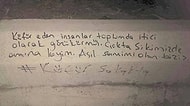 Küfür eden insanlar toplumda itici
olarak görülürmüş. Çokta Sikimizde
amına koyim. Asıl samimi olan bizi
# Küfür